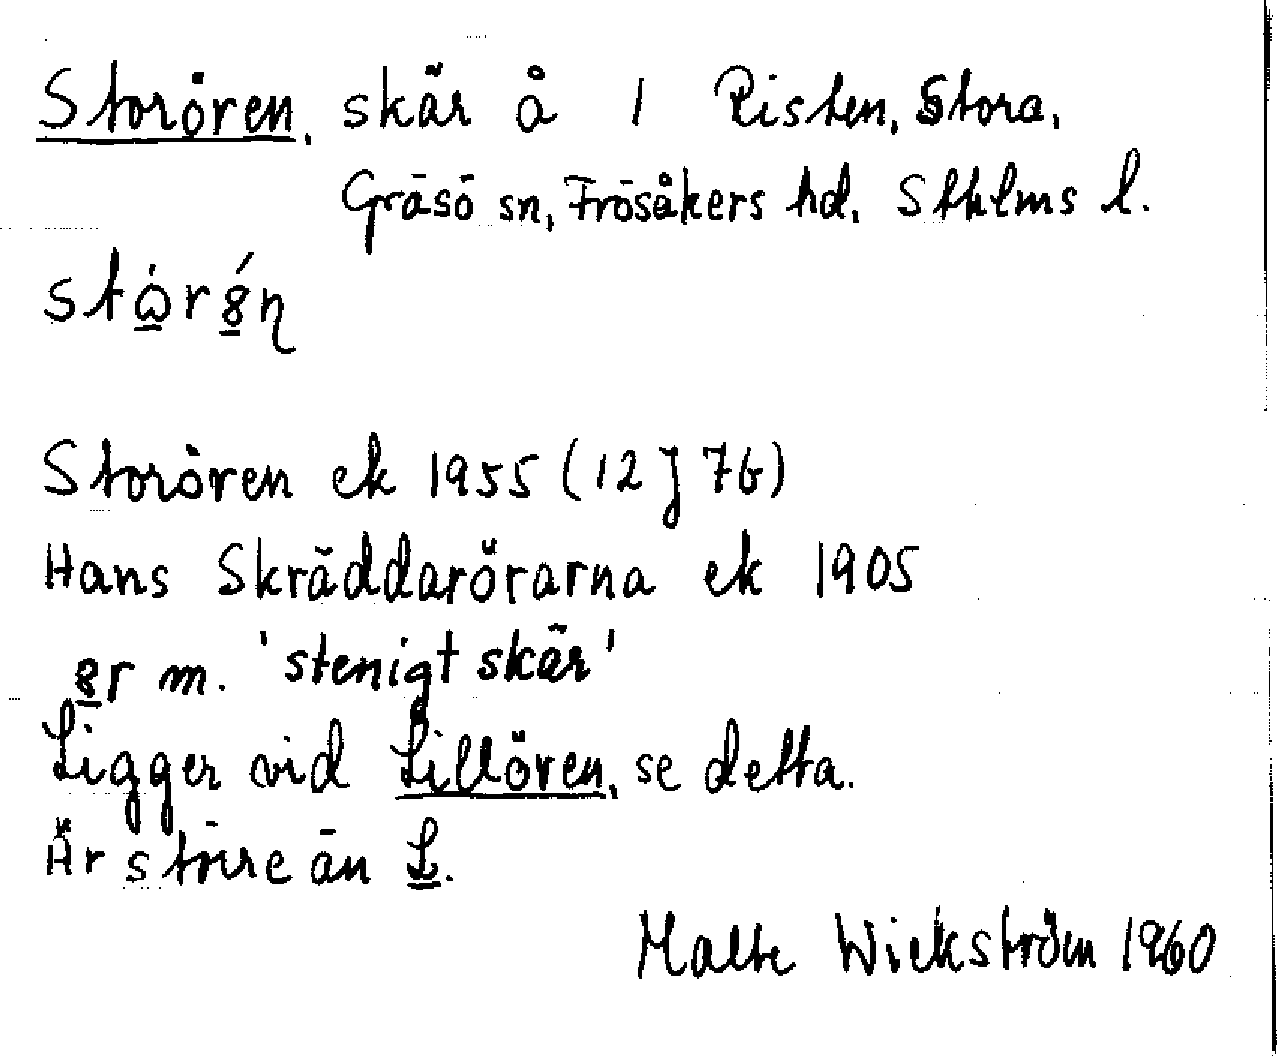 Storören, skär å 1 Risten, Stora,
Gräsö sn, Frösåkers hd. Sthlms l.
Storören ek 1955 (12 J 7b)
Hans Skräddarörarna ek 1905
m. 'stenigt skär'
Ligger vid Lillören, se detta.
Är större än L.
Malte Wickström 1960